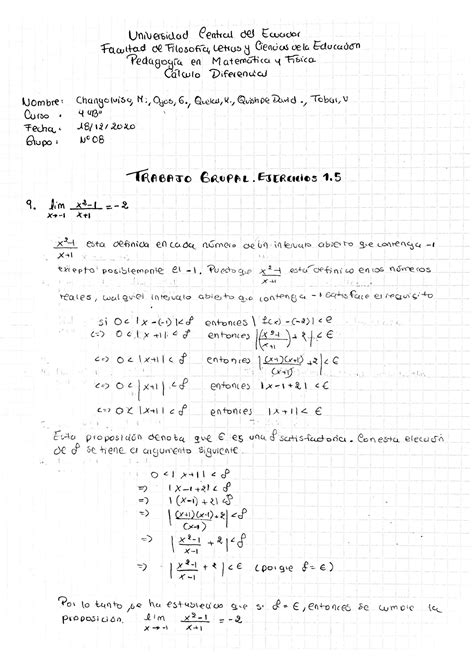 Universidad Central del Ecuador
Facultad de Filosofía, Letras y Ciencias de la Educación
Pedagogía en Matemática y Física
Cálculo Diferencial
Nombre: Changoluisa, M.; Oyos, G., Quelal, K., Quishpe David., Tobar, V
Curso: 4 "B"
Fecha: 18/12/2020
Grupo: N° 08
TRABAJO GRUPAL. EJERCICIOS 1.5
9. lim x→-1 (x²-1)/(x+1) = -2
(x²-1)/(x+1) esta definida en cada número de un intervalo abierto que contenga -1
excepto posiblemente el -1. Puesto que (x²-1)/(x+1) está definido en los números
reales, cualquier intervalo abierto que contenga -1 satisface el requisito
si 0<|x-(-1)|<δ entonces |f(x)-(-2)|<є
(=) 0<|x+1|<δ entonces |(x²-1)/(x+1) + 2|<є
<=> 0<|x+1|<δ entonces |(x-1)(x+1)/(x+1) + 2|<є
<=> 0<|x+1|<δ entonces |x-1+2|<є
<=> 0<|x+1|<δ entonces |x+1|<є
Esta proposición denota que є es una δ satisfactoria. Con esta elección
de δ se tiene el argumento siguiente.
0<|x+1|<δ
=> |x-1+2|<δ
=> |(x-1)+2|<δ
=> |(x+1)(x-1)/(x-1) + 2|<δ
=> |(x²-1)/(x-1) + 2|<δ
=> |(x²-1)/(x-1) + 2|<є (porque δ=є)
Por lo tanto, se ha establecido que si δ=є, entonces se cumple la
proposición. lim x→-1 (x²-1)/(x+1) = -2